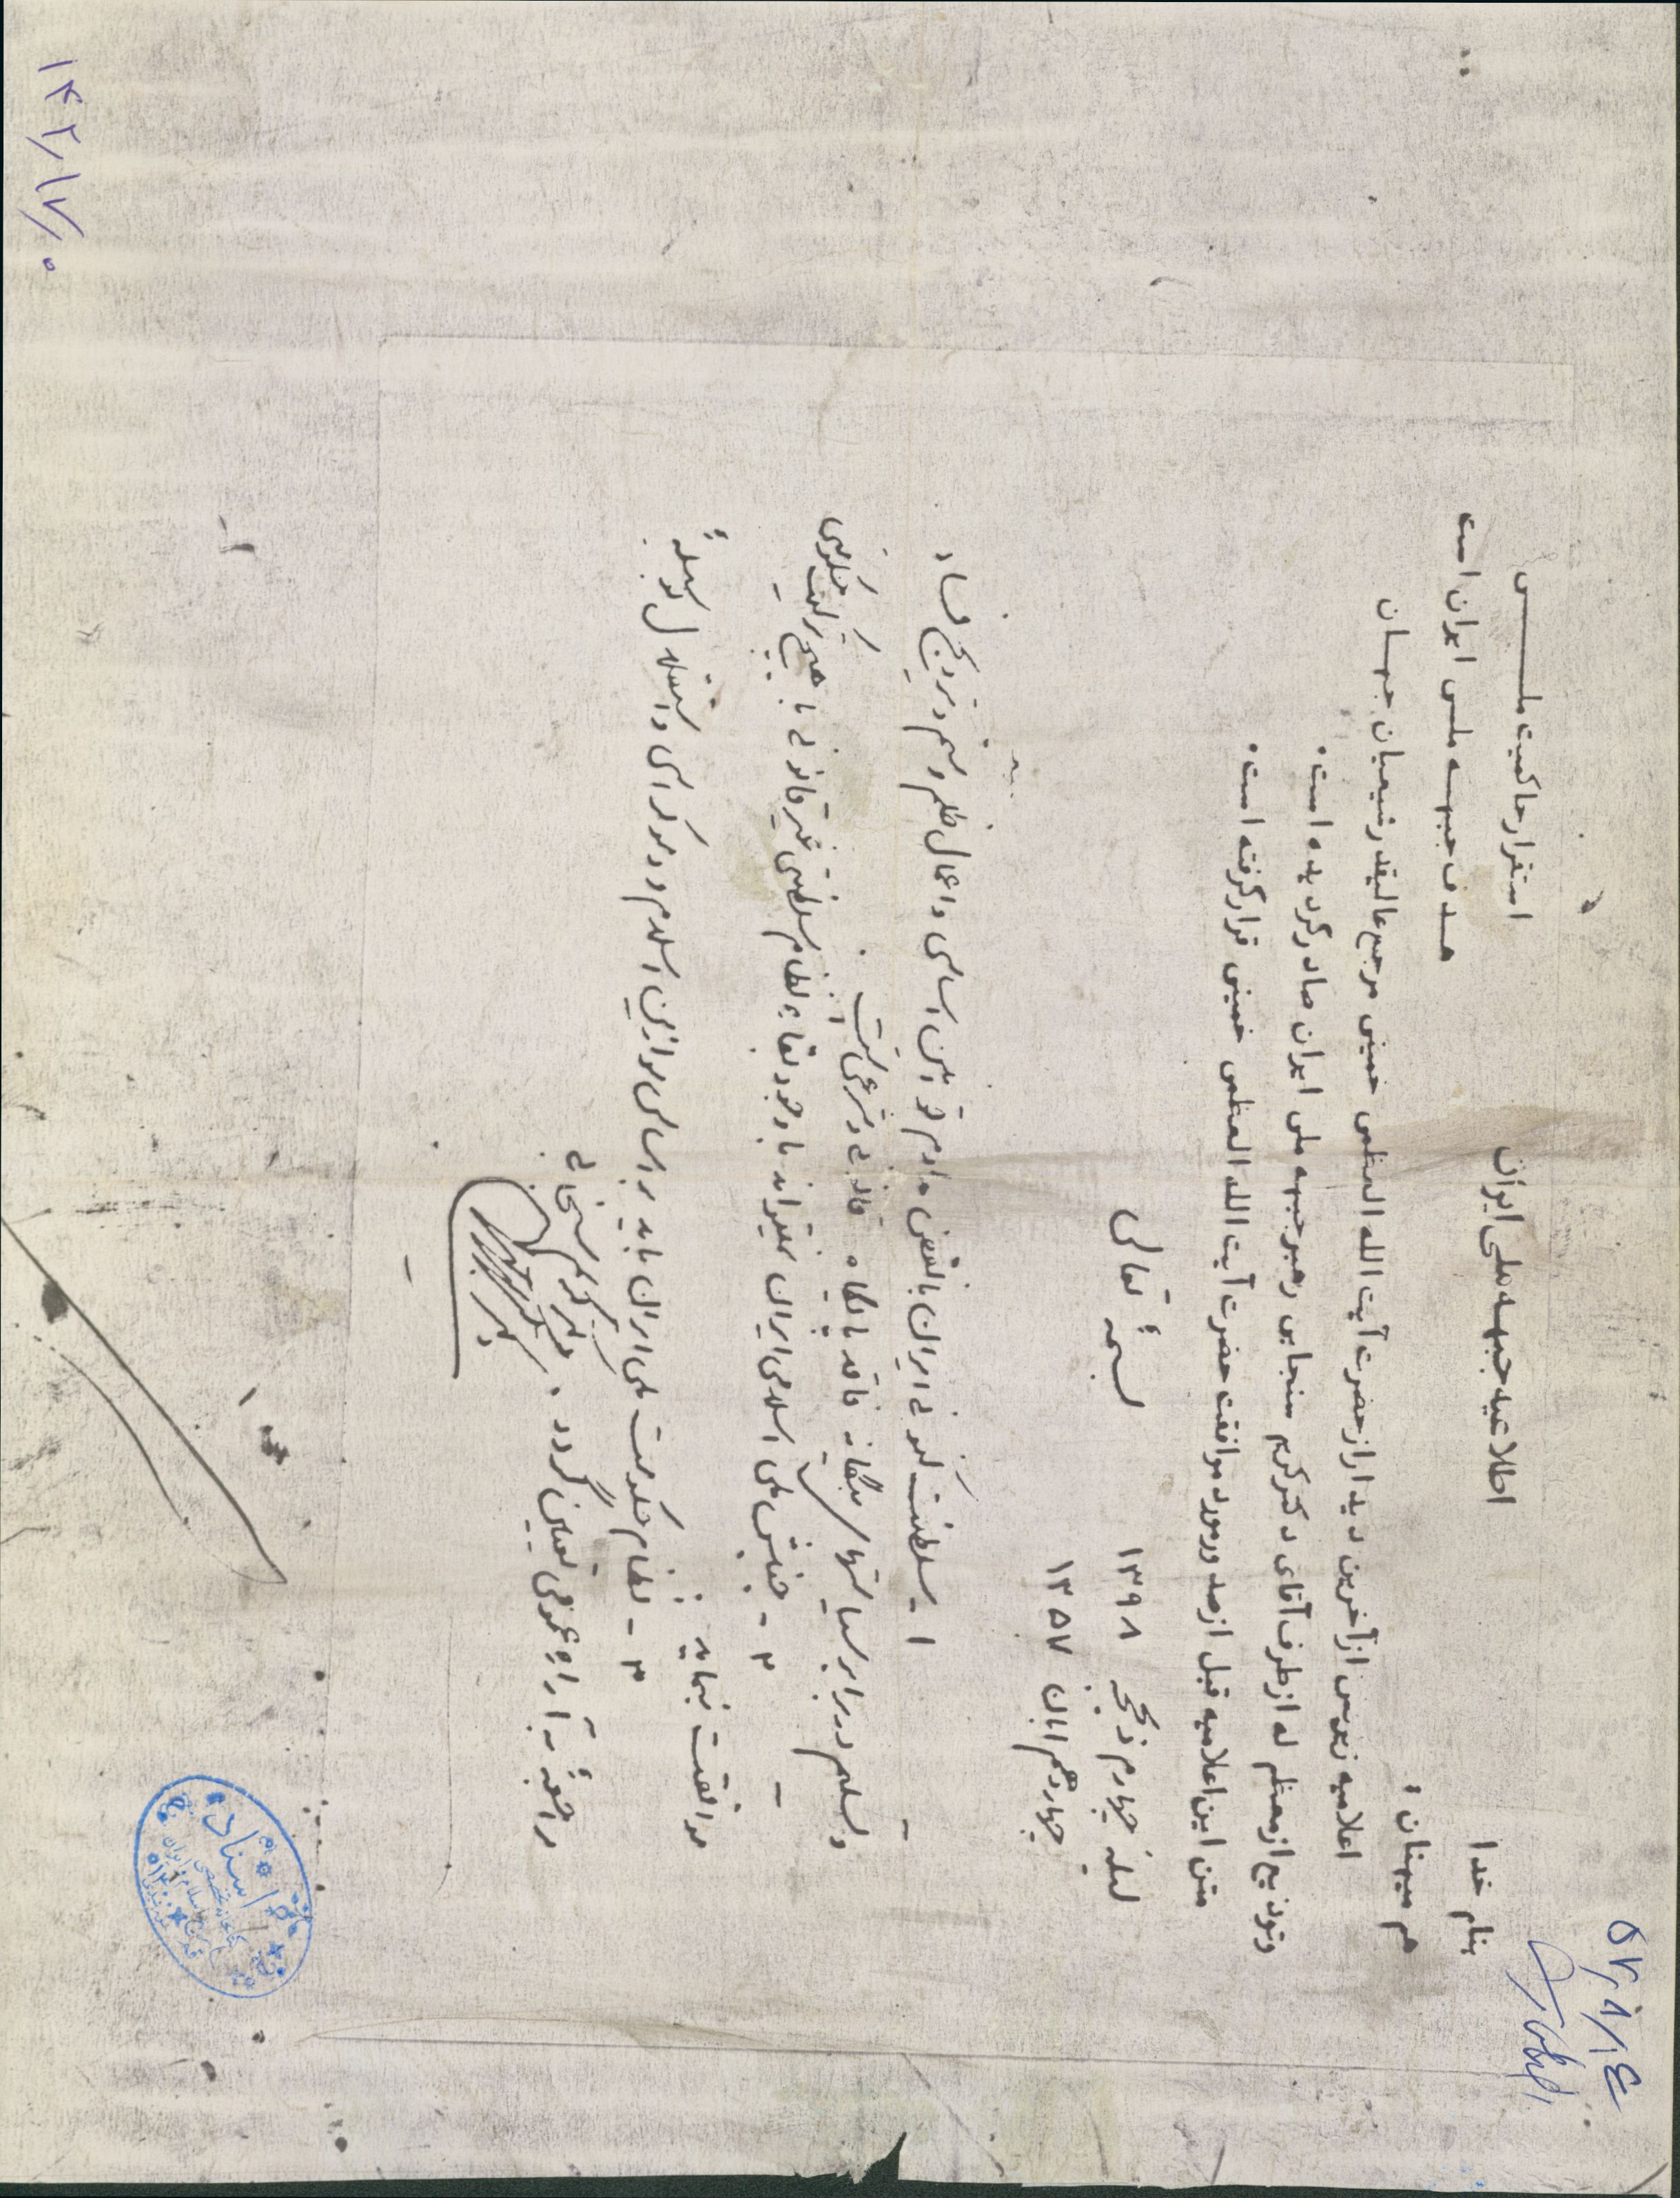 ۵۷/۸/۱٤
بنام خدا
اطلاعیه جبهه ملی ایران
استقرار حاکمیت ملی
هدف جبهه ملی ایران است
هم میهنان ؛
اعلامیه زیرپس از آخرین دیدار از حضرت آیت الله العظمی خمینی مرجع عالیقدر شیعیان جهان
وتودیع از معظم له ازطرف آقای دکترکریم سنجابی رهبر جبهه ملی ایران صادر گردیده است .
متن این اعلامیه قبل ازصدورمورد موافقت حضرت آیت الله العظمی خمینی قرارگرفته است .
بسمه تعالی
لیله چهارم ذیحجه ۱۳۹۸
چهاردهم ابان ۱۳۵۷
۱ـ سلطنت کنونی ایران با نقض مداوم قوانین اساسی و اعمال ظلم و ستم و ترویج فساد
و تسلیم در برابر سیاستهای بیگانه فاقد پایگاه قانونی و شرعی است
۲ـ جنبش ملی اسلامی ایران نمیتواند با وجود بقاء نظام سلطنتی غیر قانونی با هیچ ترکیب حکومتی
موافقت نماید
۳ـ نظام حکومت ملی ایران باید بر اساس موازین اسلام و دموکراسی و استقلال بوسیلهٔ
مراجعه به آراء عمومی تعیین گردد .
دکتر کریم سنجابی
اسناد
۱۴۲/۱۷/۰